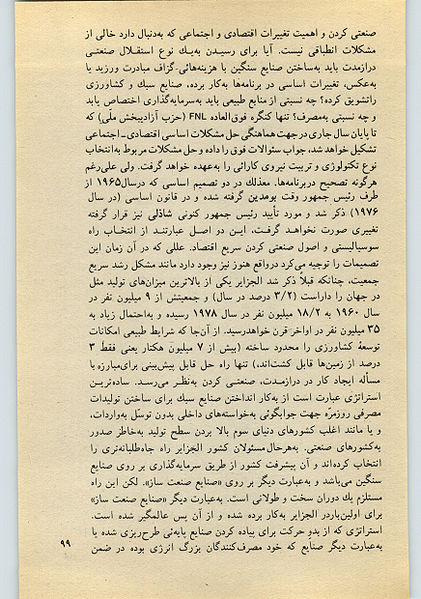 صنعتی کردن و اهمیت تغییرات اقتصادی و اجتماعی که به‌دنبال دارد خالی از
مشکلات انطباقی نیست. آیا برای رسیدن به‌یك نوع استقلال صنعتی
درازمدت باید به‌ساختن صنایع سنگین با هزینه‌هائی‌گزاف مبادرت ورزید یا
به‌عکس، تغییرات اساسی در برنامه‌ها به‌کار برده، صنایع سبك و کشاورزی
راتشویق کرده؟ چه نسبتی از منابع طبیعی باید به‌سرمایه‌گذاری اختصاص یابد
و چه نسبتی به‌مصرف؟ تنها کنگره فوق‌العاده FNL (حزب آزادیبخش ملّی) که
تا پایان سال جاری درجهت هماهنگی حل مشکلات اساسی اقتصادی ـ اجتماعی
تشکیل خواهد شد، جواب سئوالات فوق را داده و حل مشکلات مربوط به‌انتخاب
نوع تکنولوژی و تربیت نیروی کارائی را به‌عهده خواهد گرفت. ولی علی‌رغم
هرگونه تصحیح دربرنامه‌ها. معذلك در دو تصمیم اساسی که درسال۱۹۶۵ از
طرف رئیس جمهور وقت بومدین گرفته شده و در قانون اساسی (در سال
۱۹۷۶) ذکر شد و مورد تأیید رئیس جمهور کنونی شاذلی نیز قرار گرفته
تغییری صورت نخواهد گرفت، این دو اصل عبارتند از انتخاب راه
سوسیالیستی و اصول صنعتی کردن سریع اقتصاد. عللی که در آن زمان این
تصمیمات را توجیه می‌کرد درواقع هنوز نیز وجود دارد مانند مشکل رشد سریع
جمعیت، چنانکه قبلاً ذکر شد الجزایر یکی از بالاترین میزان‌های تولید مثل
در جهان را داراست (۳/۲ درصد در سال) و جمعیتش از ۹ میلیون نفر در
سال ۱۹۶۰ به ۱۸/۲ میلیون نفر در سال ۱۹۷۸ رسیده و به‌احتمال زیاد به
۳۵ میلیون نفر در اواخر قرن خواهدرسید. از آن‌جا که شرایط طبیعی امکانات
توسعهٔ کشاورزی را محدود ساخته (بیش از ۷ میلیون هکتار یعنی فقط ۳
درصد از زمین‌ها قابل کشت‌اند)، تنها راه حل قابل پیش‌بینی برای‌مبارزه با
مسأله ایجاد کار در درازمدت، صنعتی کردن به‌نظر می‌رسد. ساده‌ترین
استراتژی عبارت است از به‌کار انداختن صنایع سبك برای ساختن تولیدات
مصرفی روزمرّه جهت جوابگوئی به‌خواسته‌های داخلی بدون توسّل به‌واردات،
و یا مانند اغلب کشورهای دنیای سوم بالا بردن سطح تولید به‌خاطر صدور
به‌کشورهای صنعتی. به‌هرحال‌مسئولان کشور الجزایر راه جاه‌طلبانه‌تری را
انتخاب کرده‌اند و آن پیشرفت کشور از طریق سرمایه‌گذاری بر روی صنایع
سنگین می‌باشد و به‌عبارت دیگر بر روی «صنایع صنعت ساز». لکن این راه
مستلزم یك دوران سخت و طولانی است. به‌عبارت دیگر «صنایع صنعت ساز»
برای اولین‌باردر الجزایر به‌کار برده شده و از آن پس عالمگیر شده است.
استراتژی که از بدوِ حرکت برای پیاده کردن صنایع پایه‌ئی طرح‌ریزی شده یا
به‌عبارت دیگر صنایع که خود مصرف‌کنندگان بزرگ انرژی بوده در ضمن
۹۹